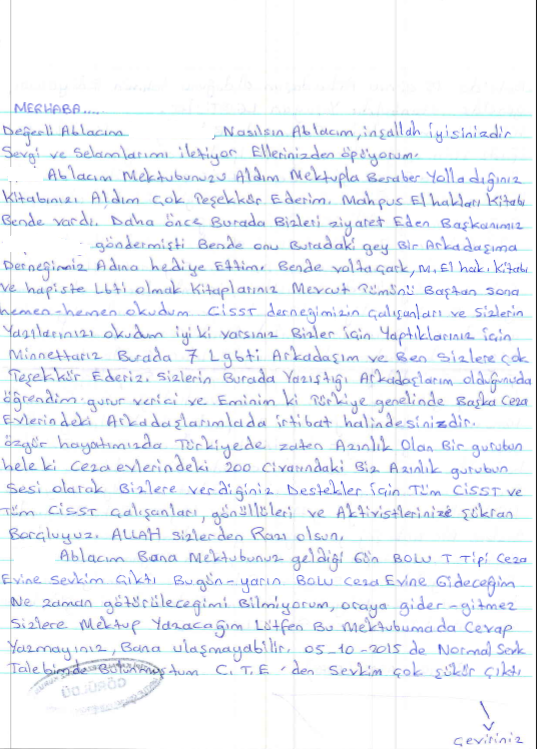 MERHABA....
Değerli Ablacım , Nasılsın Ablacım, inşallah iyisinizdir
Sevgi ve Selamlarımı iletiyor Ellerinizden öpüyorum.
Ablacım Mektubunuzu Aldım Mektupla Beraber Yolladığınız
Kitabınızı Aldım Çok Teşekkür Ederim. Mahpus El hakları Kitabı
Bende vardı. Daha önce Burada Bizleri ziyaret Eden Başkanımız
göndermişti Bende onu Buradaki gey Bir Arkadaşıma
Derneğimiz Adına hediye Ettim. Bende voltaçark, M. El hak. Kitabı
ve hapiste Lbti olmak Kitaplarınız Mevcut Tümünü Baştan Sona
hemen-hemen okudum. CİSST derneğimizin Çalışanları ve Sizlerin
Yazılarınızı okudum iyi ki varsınız Bizler için Yaptıklarınız için
Minnettarız Burada 7 Lgbti Arkadaşım ve Ben Sizlere çok
Teşekkür Ederiz. Sizlerin Burada Yazıştığı Arkadaşlarım olduğunuda
öğrendim. gurur verici ve Eminim ki Türkiye genelinde Başka Ceza
Evlerindeki Arkadaşlarımlada irtibat halindesinizdir.
özgür hayatımızda Türkiyede zaten Azınlık Olan Bir gurubun
hele ki Ceza evlerindeki 200 Civarındaki Biz Azınlık gurubun
Sesi olarak Bizlere verdiğiniz Destekler için Tüm CİSST ve
Tüm CİSST Çalışanları, gönüllüleri ve Aktivistlerinize şükran
Borçluyuz. ALLAH Sizlerden Razı olsun.
Ablacım Bana Mektubunuz geldiği Gün BOLU T Tipi Ceza
Evine Sevkim Çıktı Bugün-yarın BOLU Ceza Evine Gideceğim
Ne zaman götürüleceğimi Bilmiyorum, oraya gider-gitmez
Sizlere Mektup Yazacağım Lütfen Bu Mektubumada Cevap
Yazmayınız, Bana ulaşmayabilir. 05-10-2015 de Normal Sevk
Talebimde Bulunmuştum C.T.E 'den Sevkim çok şükür çıktı
GÖRÜLDÜ
Çeviriniz